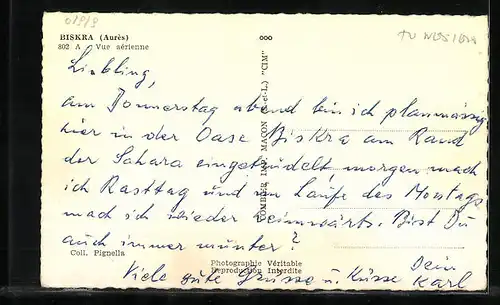 BISKRA (Aurès)
802 A - Vue aérienne
Liebling,
am Donnerstag abend bin ich planmässig
hier in der Oase Biskra am Rand
der Sahara eingetrudelt morgen mach
ich Rasttag und im Laufe des Montags
mach ich wieder heimwärts. Bist Du
auch immer munter?
Dein
Viele gute Grüsse u. Küsse Karl
COMBIER IMP. MACON (S.-et-L.) "CIM"
Coll. Pignella
Photographie Véritable
Reproduction Interdite